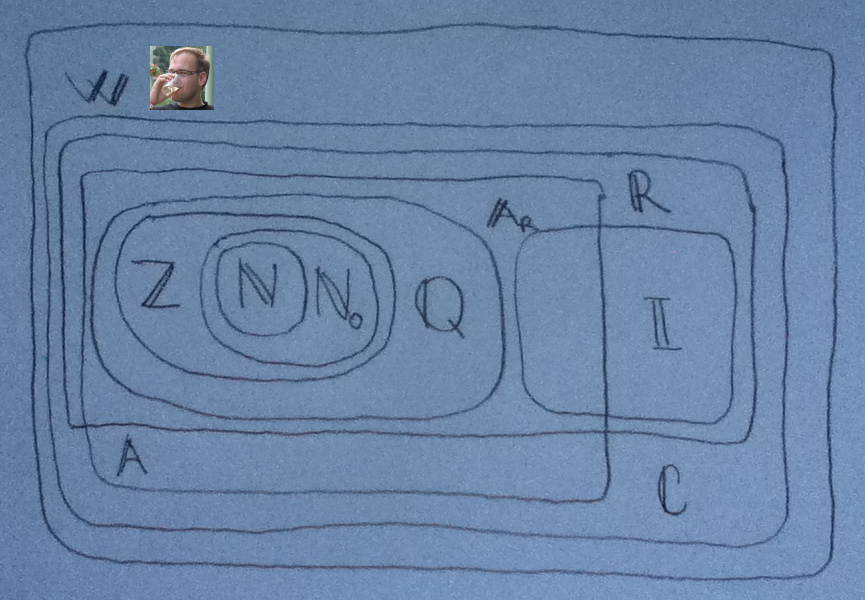 W
A_R
R
Z
N
N₀
Q
I
A
C